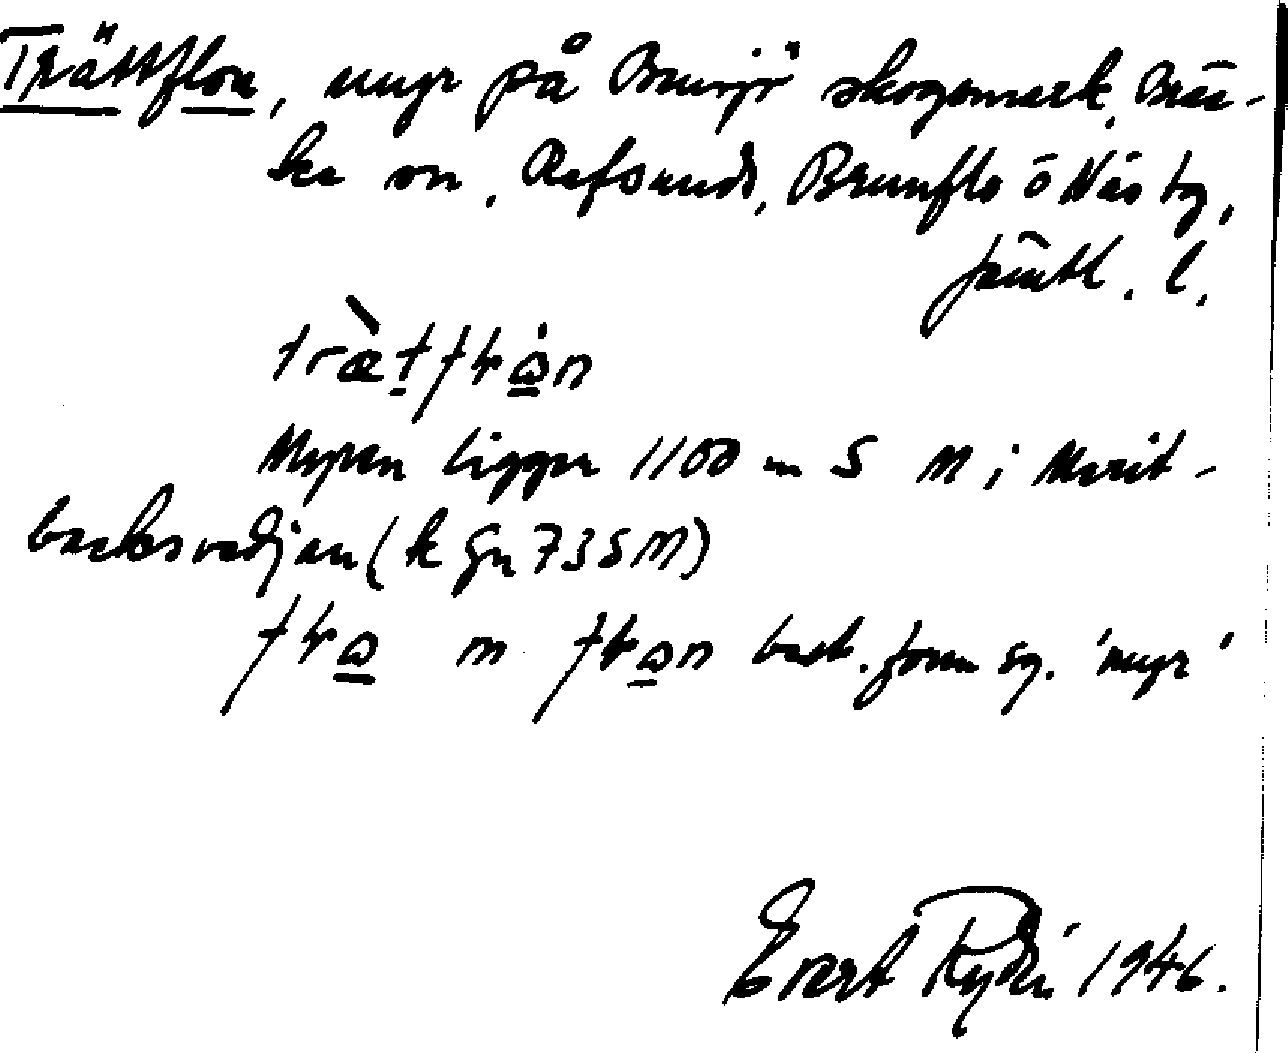 Trättflon, myr på Bensjö skogsmark, Brä-
cke sn, Refsunds, Brunflo o Näs tg,
Jämtl. l.
træ̀tfɫɷn
Myren ligger 1100 m S M i Marit-
backsvadjan (k Gn 735 M)
fɫɷ m fɫɷn best. form sg. 'myr'
Evert Rydé 1946.